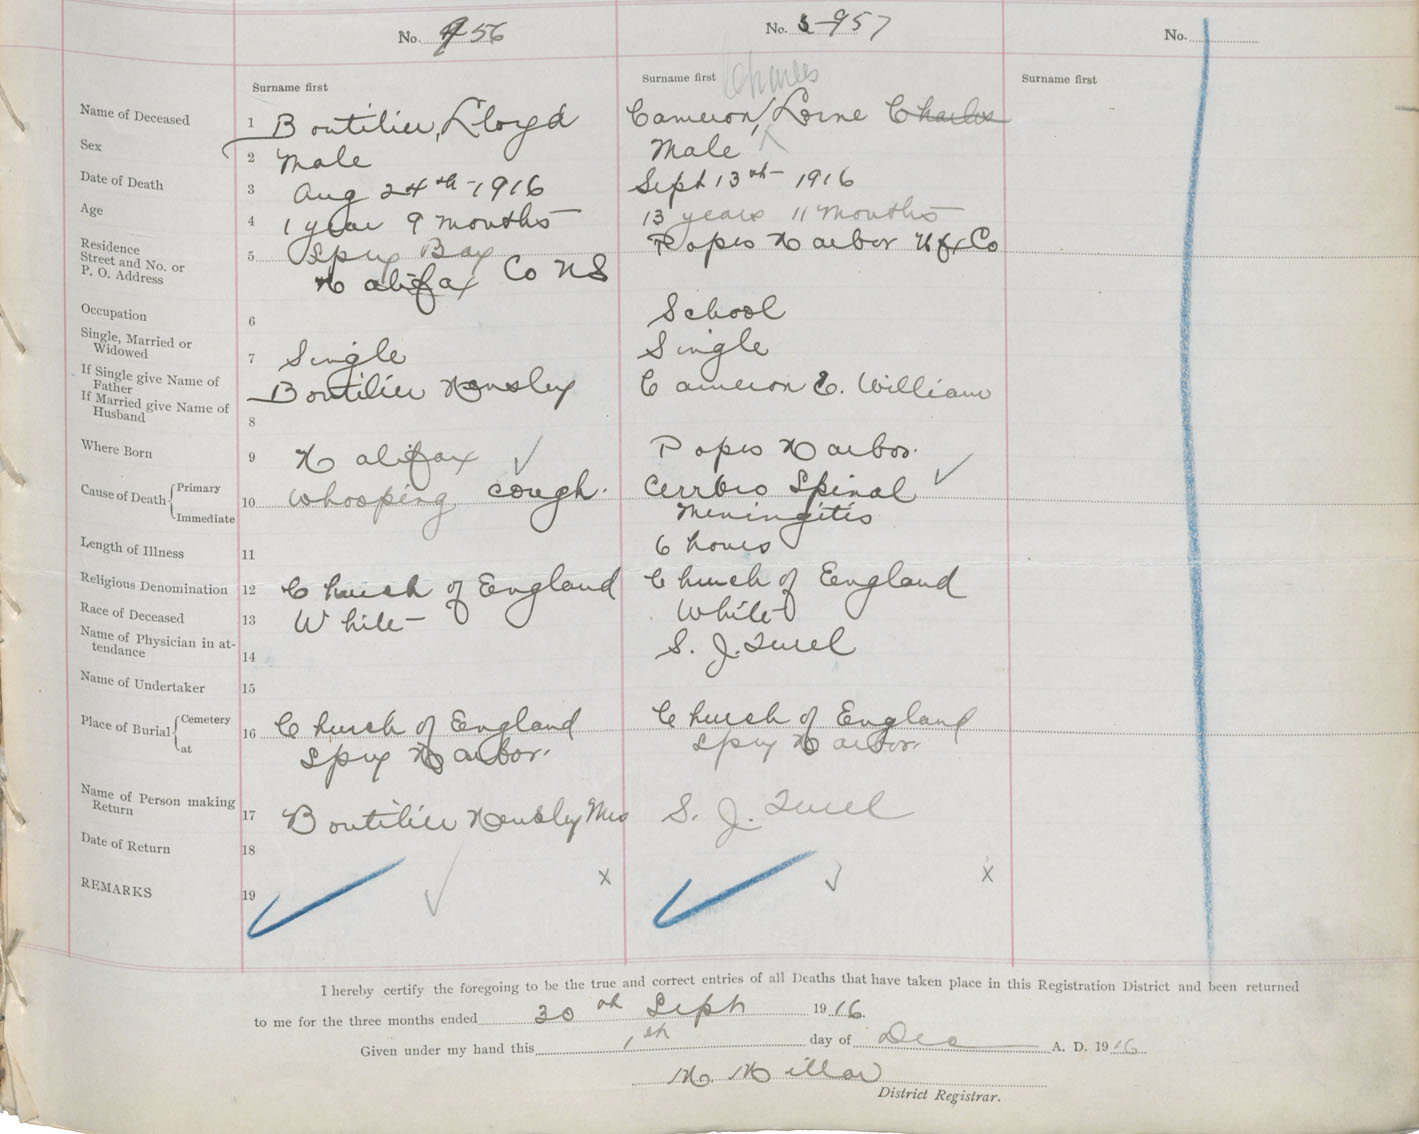 No. 956
No. 957
No.
Surname first
Surname first Charles
Surname first
Name of Deceased 1 Boutilier, Lloyd Cameron, Lorne Charles
Sex 2 Male Male
Date of Death 3 Aug 24th-1916 Sept 13th-1916
Age 4 1 year 9 months 13 years 11 months
Residence
Street and No. or
P. O. Address
5 Spry Bay Popes Harbor Hfx Co
Halifax Co NS
Occupation 6 School
Single, Married or
Widowed
7 Single Single
If Single give Name of
Father
Boutilier Hensley Cameron C. William
If Married give Name of
Husband
8
Where Born 9 Halifax Popes Harbor.
Cause of Death Primary
Immediate
10 Whooping cough. Cerrbro Spinal
Meningitis
Length of Illness 11 6 hours
Religious Denomination 12 Church of England Church of England
Race of Deceased 13 White White
Name of Physician in at-
tendance
14 S. J.
Name of Undertaker 15
Place of Burial Cemetery
at
16 Church of England Church of England
Spry Harbor. Spry Harbor.
Name of Person making
Return
17 Boutilier Hensley Mrs S. J.
Date of Return 18
REMARKS 19 x x
I hereby certify the foregoing to be the true and correct entries of all Deaths that have taken place in this Registration District and been returned
to me for the three months ended 30th Sept 1916.
Given under my hand this 1th day of Dec A. D. 1916
District Registrar.